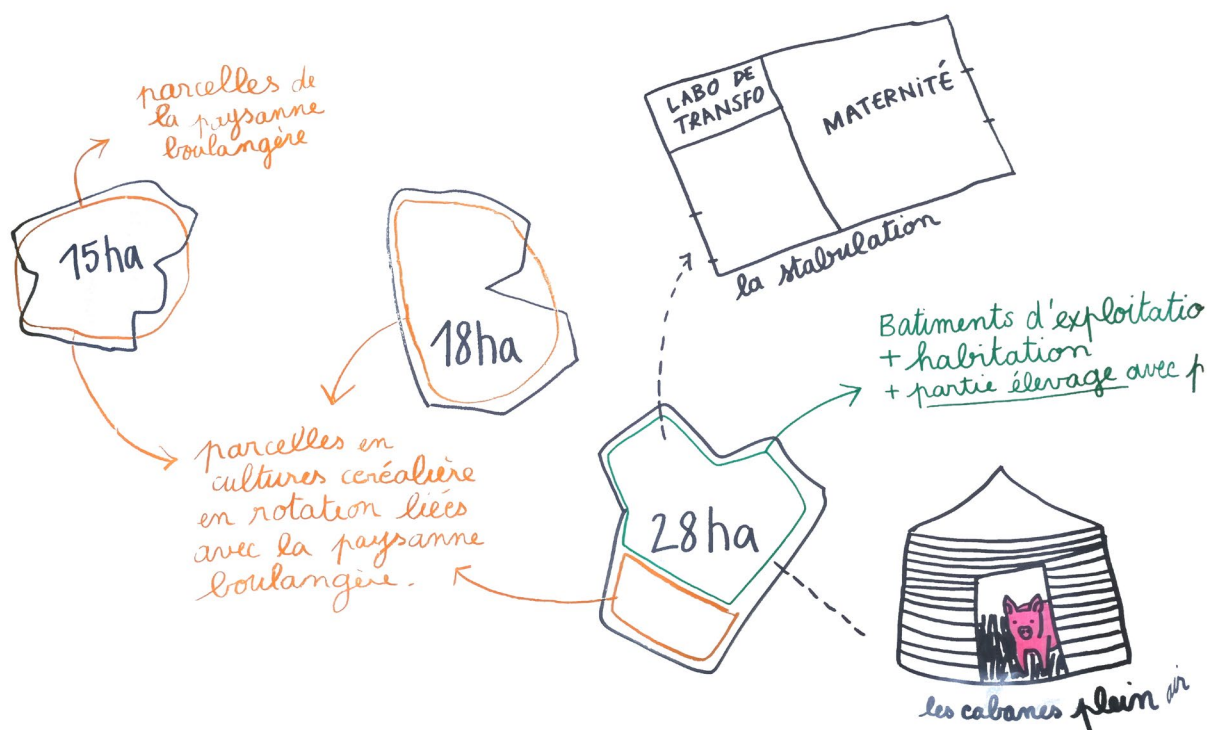 parcelles de
la paysanne
boulangère
15ha
18ha
parcelles en
cultures ceréalière
en rotation liées
avec la paysanne
boulangère.
LABO DE
TRANSFO
MATERNITÉ
la stabulation
Batiments d'exploitatio
+ habitation
+ partie élevage avec p
28ha
les cabanes plein air